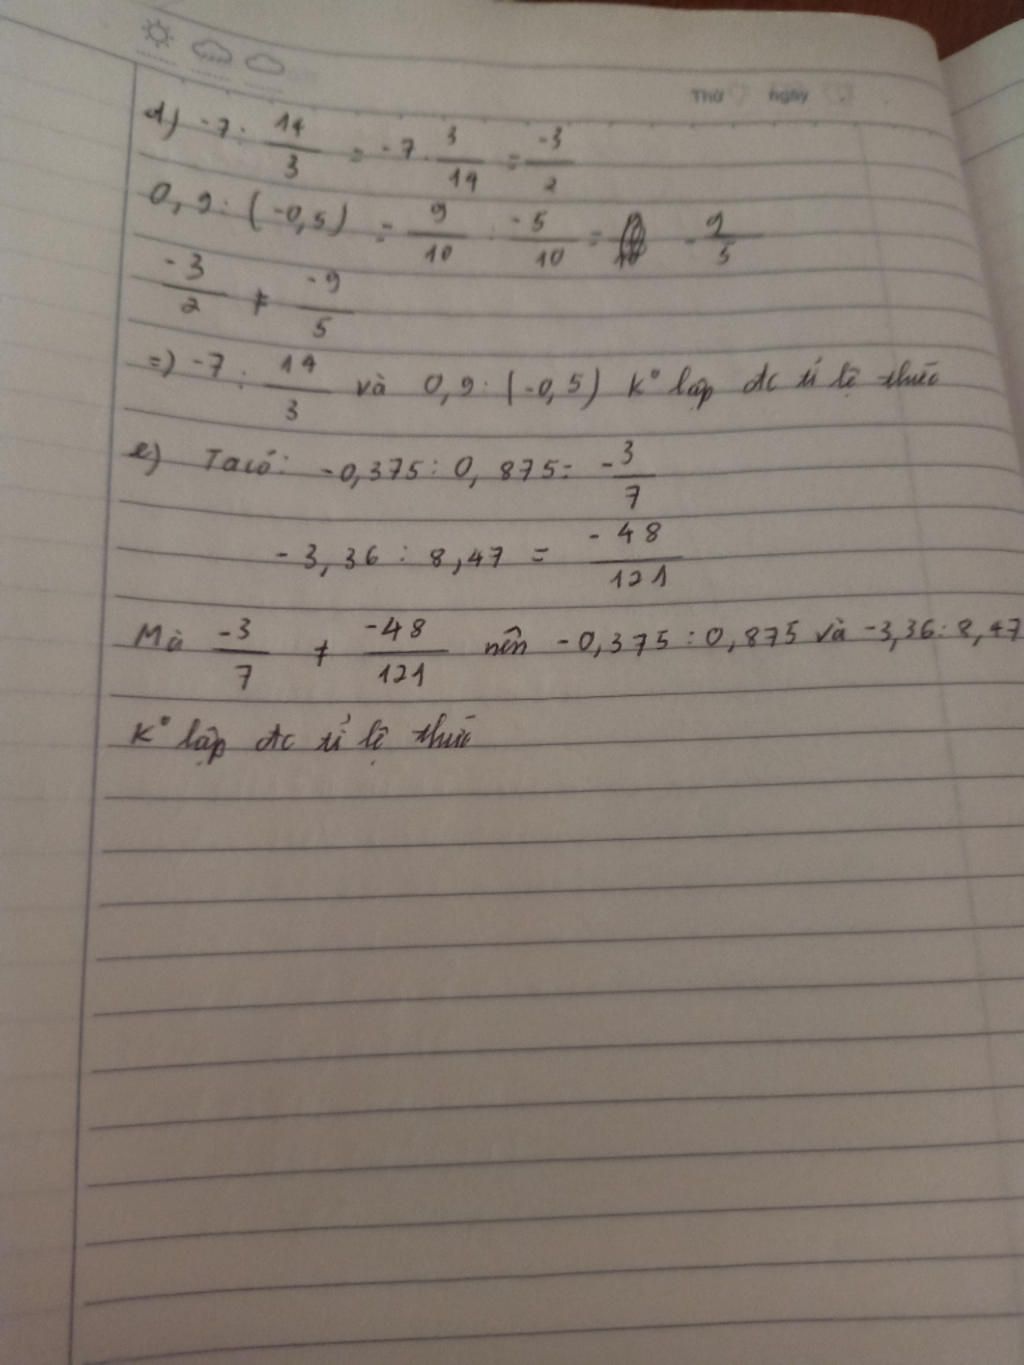 Thứ ngày
d) -7 : 14/3 = -7 . 3/14 = -3/2
0,9 : (-0,5) = 9/10 : -5/10 = -9/5
-3/2 ≠ -9/5
=) -7 : 14/3 và 0,9 : (-0,5) K° lập đc tỉ lệ thức
e) Ta có: -0,375 : 0,875 = -3/7
-3,36 : 8,47 = -48/121
Mà -3/7 ≠ -48/121 nên -0,375 : 0,875 và -3,36 : 8,47
K° lập đc tỉ lệ thức